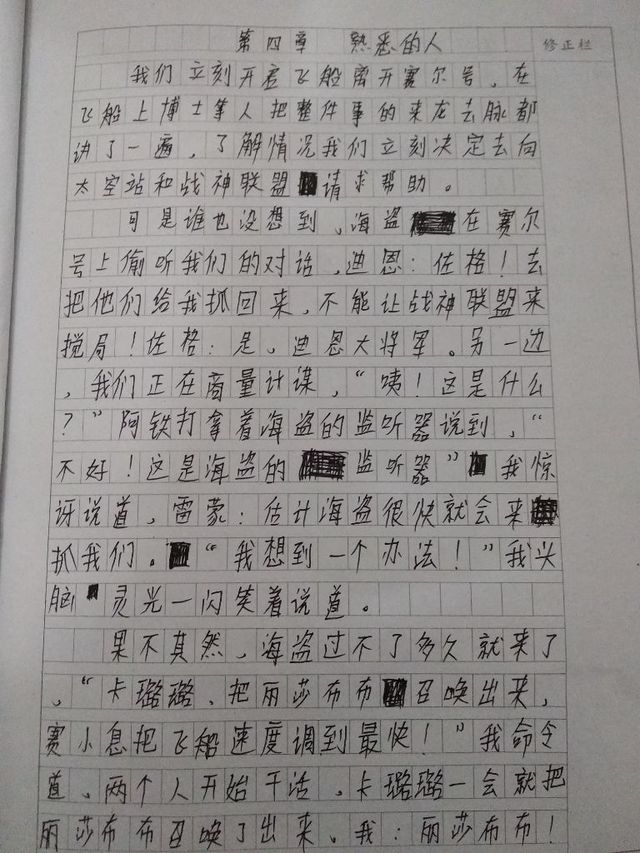 第四章 熟悉的人
修正栏
我们立刻开启飞船离开赛尔号,在
飞船上博士等人把整件事的来龙去脉都
讲了一遍,了解情况我们立刻决定去向
太空站和战神联盟请求帮助。
可是谁也没想到,海盗在赛尔
号上偷听我们的对话,迪恩:佐格!去
把他们给我抓回来,不能让战神联盟来
搅局!佐格:是,迪恩大将军。另一边
,我们正在商量计谋,“咦!这是什么
?”阿铁打拿着海盗的监听器说到,“
不好!这是海盗的监听器”我惊
讶说道,雷蒙:估计海盗很快就会来
抓我们。“我想到一个办法!”我兴
脑灵光一闪笑着说道。
果不其然,海盗过不了多久就来了
,“卡璐璐,把丽莎布布召唤出来,
赛小息把飞船速度调到最快!”我命令
道,两个人开始干活,卡璐璐一会就把
丽莎布布召唤了出来。我:丽莎布布!